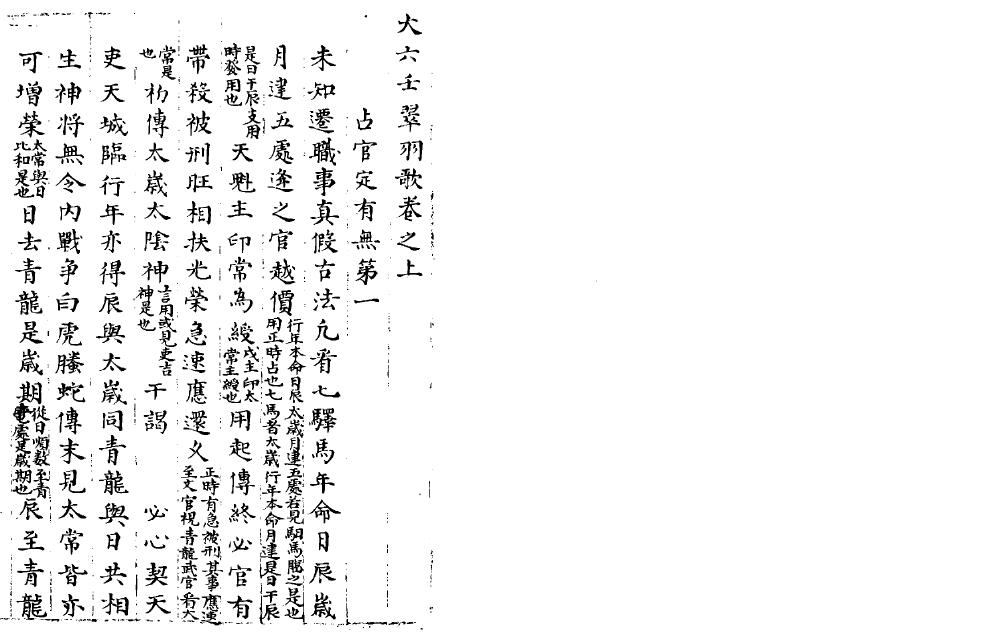 大六壬翠羽歌卷之上
占官定有無第一
未知遷職事真假古法凢看七驛馬年命日辰歲
月建五處逢之官越價行年本命日辰太歲月建五處若見馹馬臨之是也用正時占也七馬者太歲行年本命月建是日干辰
是日干辰支用時發用也天魁主印常為綬戌主印太常主綬也用起傳終必官有
帶殺被刑旺相扶光榮急速應還乂正時有急被刑其事應速至文官視青龍武官看太
常是也初傳太歲太陰神言用或見吏吉神是也干謁 必心契天
吏天城臨行年亦得辰與太歲同青龍與日共相
生神将無令内戰争白虎螣蛇傳末見太常皆亦
可增榮太常與日比和是也日去青龍是歲期從日順數至青龍處是歲期也辰至青龍